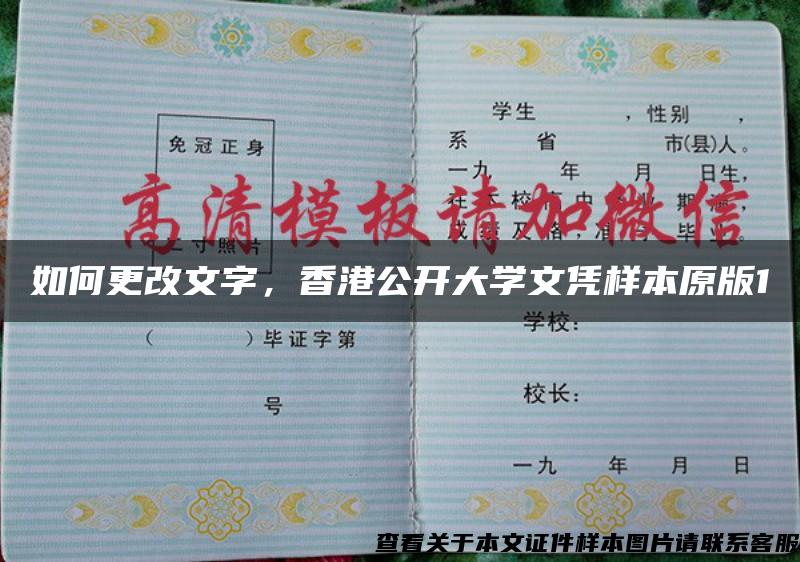 免冠正身
二寸照片
（ ）毕证字第
号
学生 ，性别 ，
系 省 市(县)人。
一九 年 月 日生，
在本校高中 业 期满，
成绩及格，准予毕业。
高清模板请加微信
如何更改文字，香港公开大学文凭样本原版1
学校：
校长：
一九 年 月 日
查看关于本文证件样本图片请联系客服